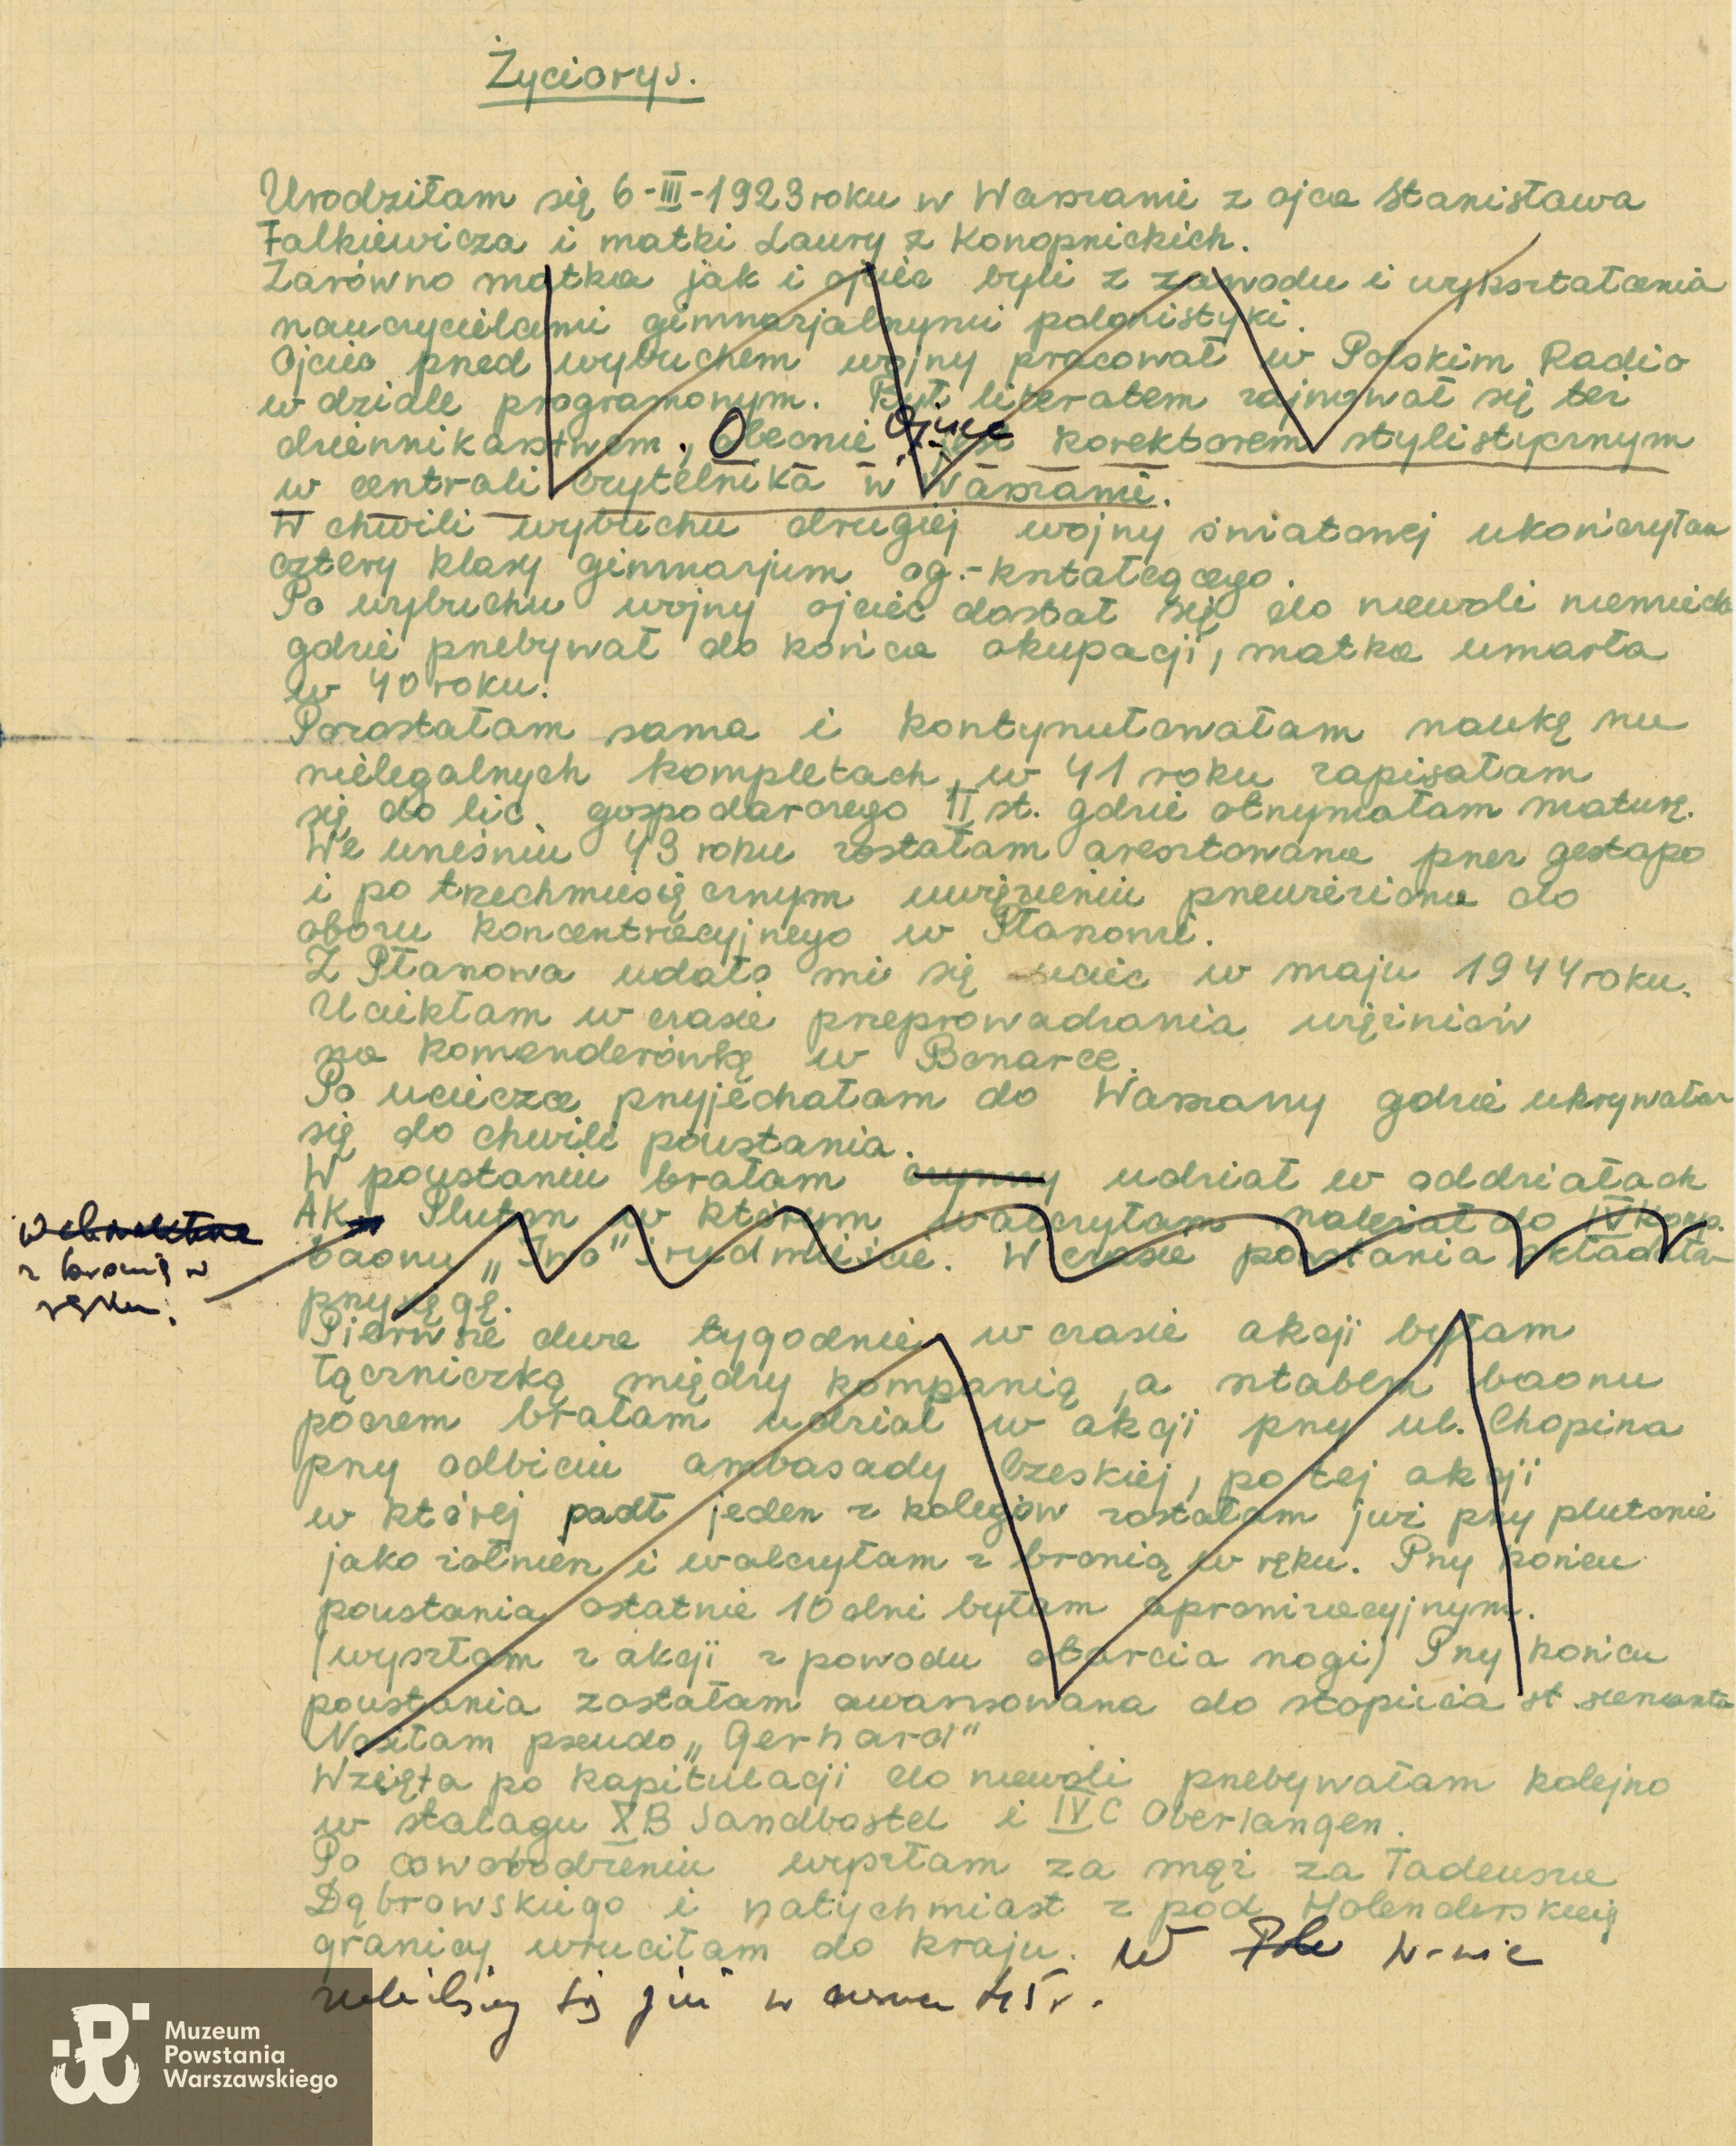 Życiorys.
Urodziłam się 6-III-1923 roku w Warszawie z ojca Stanisława
Falkiewicza i matki Laury z Konopnickich.
Zarówno matka jak i ojciec byli z zawodu i wykształcenia
nauczycielami gimnazjalnymi polonistyki.
Ojciec przed wybuchem wojny pracował w Polskim Radio
w dziale programowym. Był literatem zajmował się też
dziennikarstwem. Obecnie Ojciec jest korektorem stylistycznym
w centrali Czytelnika w Warszawie.
W chwili wybuchu drugiej wojny światowej ukończyłam
cztery klasy gimnazjum og.-kształcącego.
Po wybuchu wojny ojciec dostał się do niewoli
gdzie przebywał do końca okupacji, matka umarła
w 40 roku.
Pozostałam sama i kontynułowałam naukę nu
nielegalnych kompletach, w 41 roku zapisałam
się do lic. gospodarczego II st. gdzie otrzymałam maturę.
We wrześniu 43 roku zostałam aresztowana przez gestapo
i po trzechmiesięcznym uwięzieniu przewieziona do
obozu koncentracyjnego w Płaszowie.
Z Płaszowa udało mi się uciec w maju 1944 roku.
Uciekłam w czasie przeprowadzania więźniów
na komenderówkę w Bonarce.
Po ucieczce przyjechałam do Warszawy gdzie ukrywałam
się do chwili powstania.
W powstaniu brałam czynny udział w oddziałach
AK. Pluton w którym walczyłam należał do IV komp.
z bronią w
ręku.
baonu „Iwo" śródmieście. W czasie powstania składałam
przysięgę.
Pierwsze dwa tygodnie w czasie akcji byłam
łączniczką między kompanią, a sztabem baonu
poczem brałam udział w akcji przy ul. Chopina
przy odbiciu ambasady Czeskiej, po tej akcji
w której padł jeden z kolegów zostałam już przy plutonie
jako żołnierz i walczyłam z bronią w ręku. Przy końcu
powstania ostatnie 10 dni byłam aprowizacyjnym.
(wyszłam z akcji z powodu otarcia nogi) Przy końcu
powstania zostałam awansowana do stopnia st. sierżanta
Nosiłam pseudo „Gerhard"
Wzięta po kapitulacji do niewoli przebywałam kolejno
w stalagu XB Sandbostel i IVC Oberlangen.
Po oswobodzeniu wyszłam za mąż za Tadeusza
Dąbrowskiego i natychmiast z pod Holenderskiej
granicy wruciłam do kraju. W W-wie
się już w 45 r.
Muzeum
Powstania
Warszawskiego